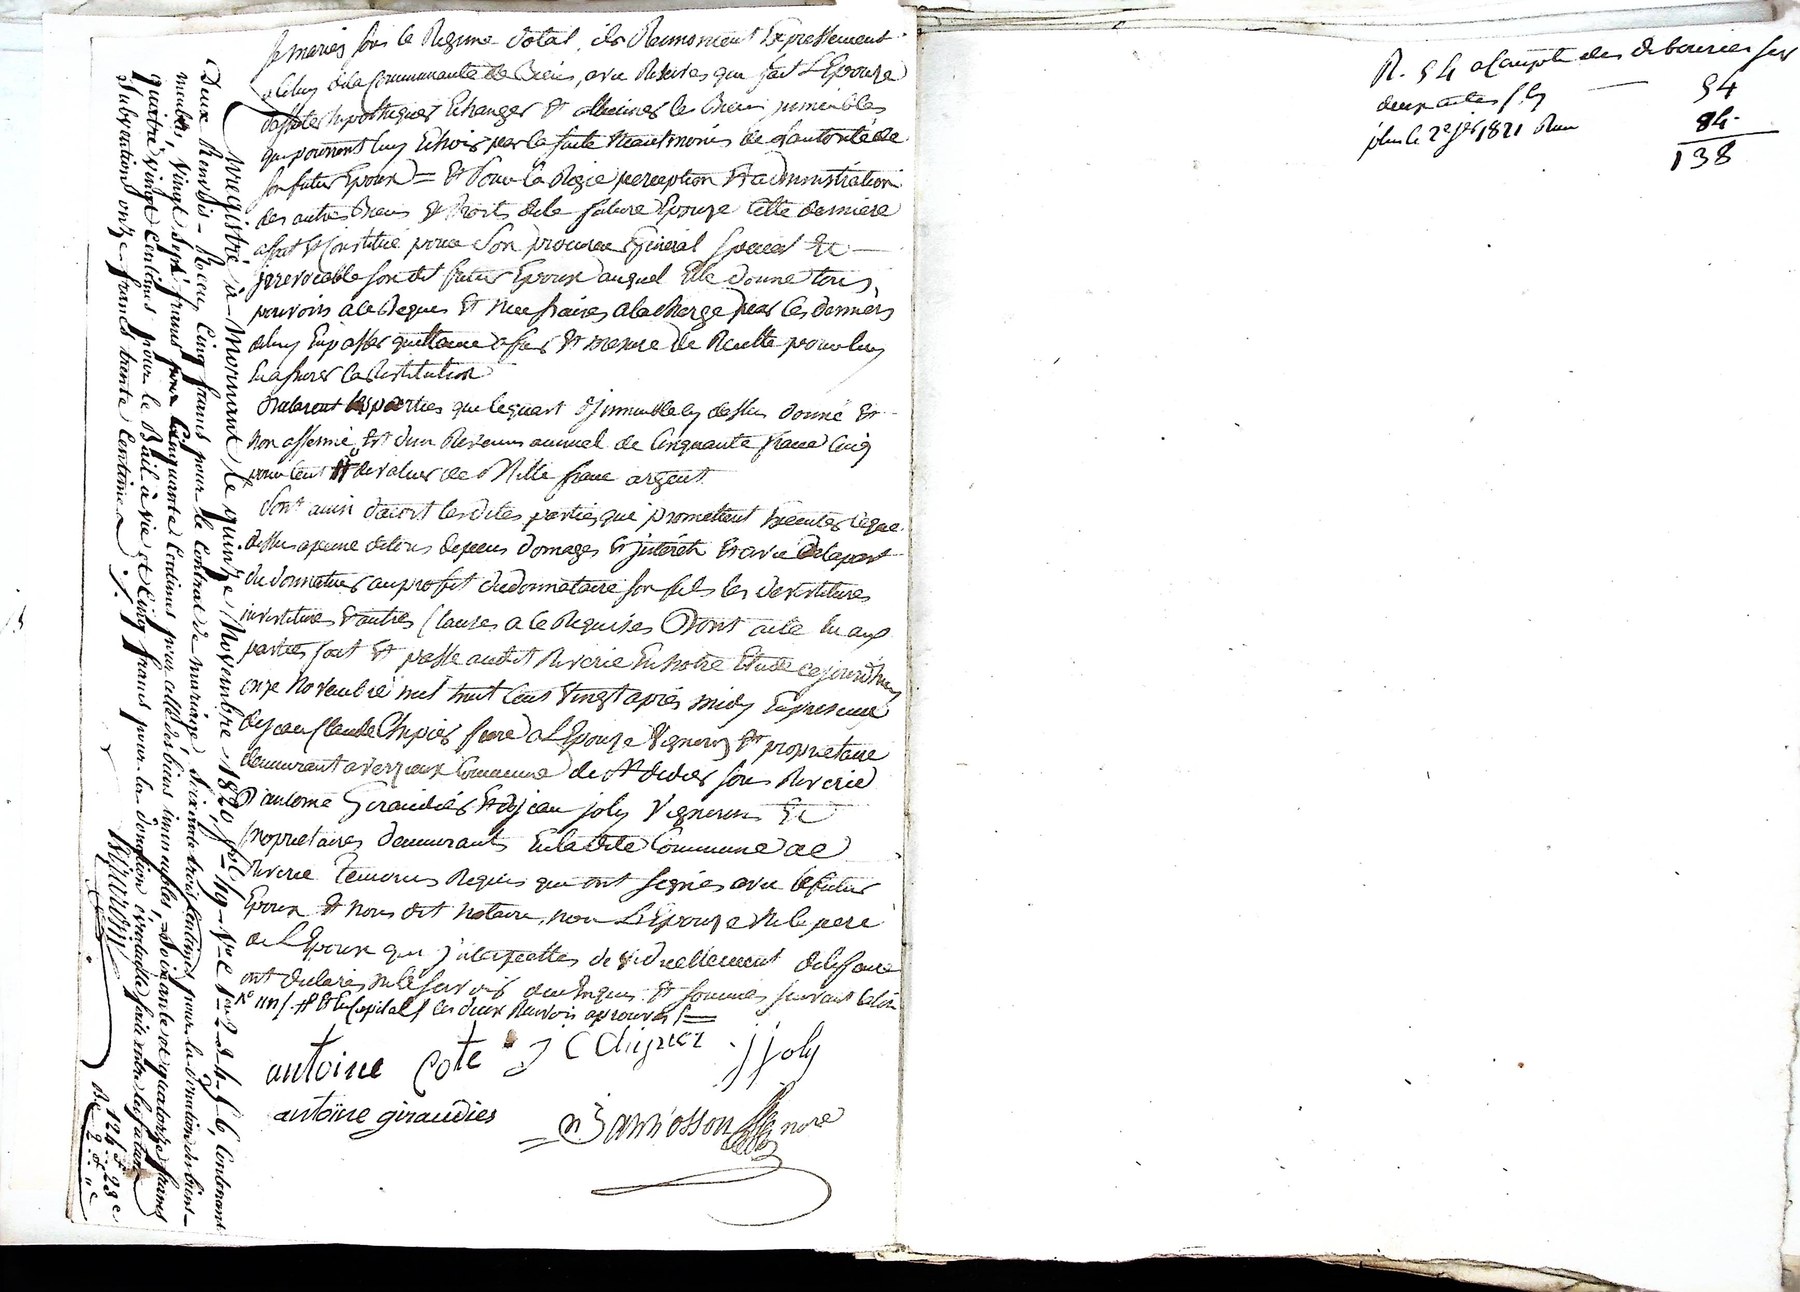 se mariez sous le Regime dotal, ils Renoncent Expressement
a celuy de la Communauté de Biens, avec Reserves que fait L'Epouze
d'affecter hypothequer Echanger Et alliener les Biens immeubles
qui pourront luy Echoir par la suite neantmoins de l'autorité de
son futur Epoux = Et Pour la Regie perception Et administration
des autres Biens Et Droits de la future Epouze cette derniere
a fait Et Constitué pour Son procureur General special Et
irrevocable son dit futur Epoux auquel Elle donne tous
pouvoirs a ce Requis Et necessaires a la charge par ce dernier
de luy En passer quittance a fur Et mesure de Recette pour luy
En assurer la Restitution
Declarent les parties que le quart d'immeuble cy dessus donné Et
non affermé Est d'un Revenu annuel de Cinquante franc Cinq
pour Cent # de valeur de Mille franc argent
Dont ainsi d'accort lesdites parties que promettent Executer ce que
dessus a peine de tous depens domages Et interêts Et avec de la part
du donnateur au profit du donnataire son fils les devestitures
investitures Et autres Clauses a ce Requises Dont acte Eu aux
parties fait Et passé audit Riverie En notre Etude ce jourd'huy
onze Novembre mil huit Cent Vingt après midy En presence
de jean Claude Chipier frere a L'Epouze Vigneron Et proprietaire
demeurant a Verjeux Commune de St Didier sous Riverie
D'antoine Giraudier Et de jean joly Vignerons Et
proprietaires demeurants En la dite Commune de
Riverie Temoins Requis qui ont signés avec le futur
Epoux Et nous dit notaire, non L'Epouze Ni le pere
de L'Epoux qui interpellés individuellement de le faire
ont declarés ne le savoir de ce Enquis Et sommés suivant la loi
# Et En Capital / les deux Renvois aprouvés /=
antoine Cote J C Chipier j joly
antoine giraudier
Bann'osson nore
Enregistré à Mornant le quinze Novembre 1820, fol. 49 V° C 1re 2 3 4 5 & 6, Contenant
Deux Renvois - Reçu Cinq francs pour le Contrat de mariage, Soixante trois centimes pour la donation des biens
meubles, Vingt Sept francs Cinquante Centimes pour celle des biens immeubles, Soixante et quatorze francs
quatre vingt Centimes pour le Bail à vie, et Cinq francs pour la donation éventuelle faite entre les futurs
Subvention onze francs trente Centimes ./.
124 f 23 c
R. 54 a Compte des debourses sur
deux actes s. g — 54
plus le 2e jer 1821 Reçu 84
138